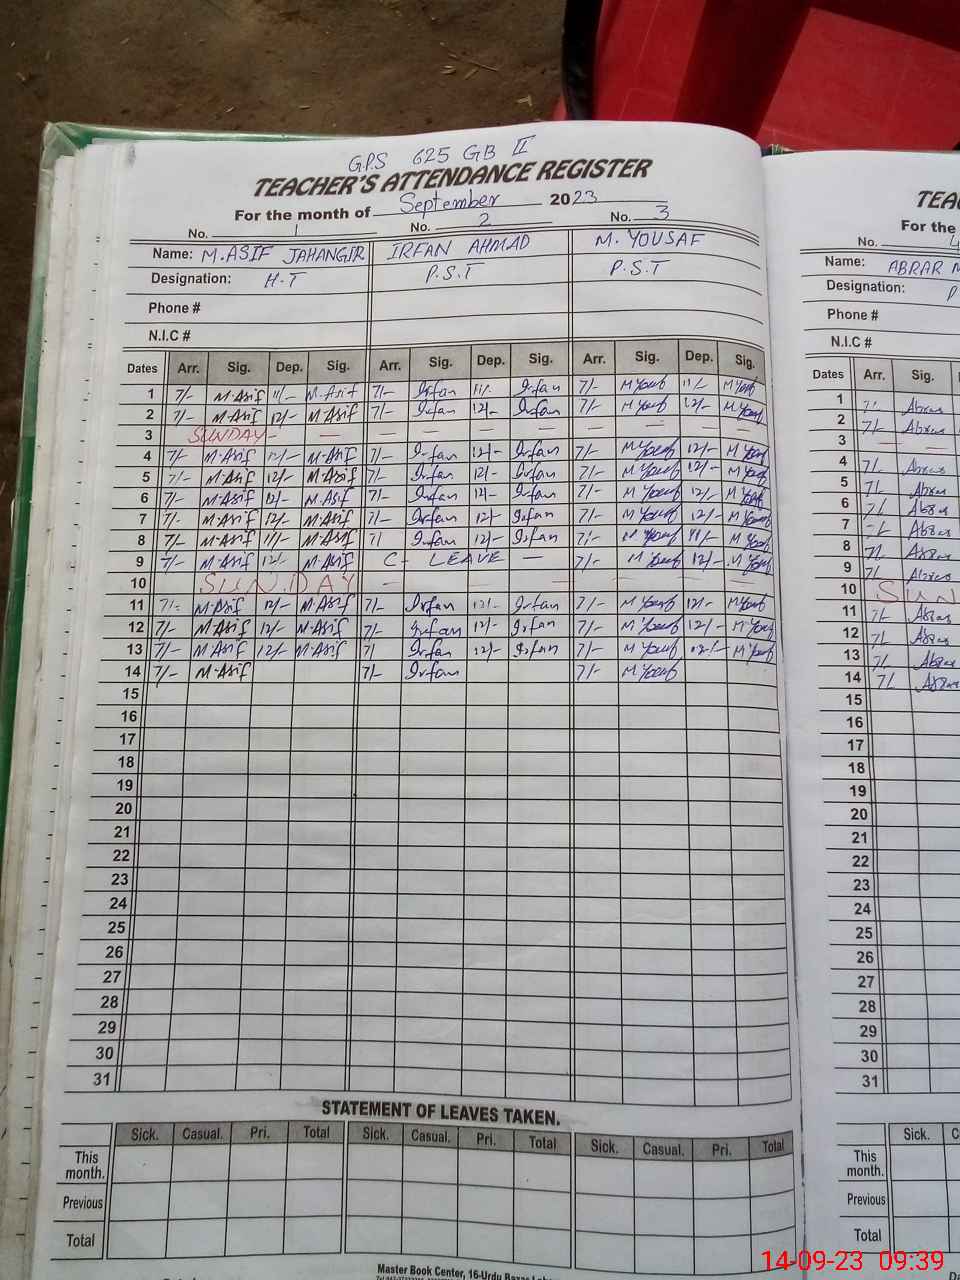 GPS 625 GB II
TEACHER'S ATTENDANCE REGISTER
For the month of September 2023
No. 1 No. 2 No. 3
Name: M.ASIF JAHANGIR IRFAN AHMAD M. YOUSAF
Designation: H.T P.S.T P.S.T
Phone #
N.I.C #
Dates Arr. Sig. Dep. Sig. Arr. Sig. Dep. Sig. Arr. Sig. Dep. Sig.
1 7/- M.Asif 11/- M.Asif 7/- Irfan 11/- Irfan 7/- M Yousf 11/- M Yousf
2 7/- M.Asif 12/- M.Asif 7/- Irfan 12/- Irfan 7/- M Yousf 12/- M Yousf
3 SUNDAY - — — — — — — — — —
4 7/- M.Asif 12/- M.Asif 7/- Irfan 12/- Irfan 7/- M Yousf 12/- M Yousf
5 7/- M.Asif 12/- M.Asif 7/- Irfan 12/- Irfan 7/- M Yousf 12/- M Yousf
6 7/- M.Asif 12/- M.Asif 7/- Irfan 12/- Irfan 7/- M Yousf 12/- M Yousf
7 7/- M.Asif 12/- M.Asif 7/- Irfan 12/- Irfan 7/- M Yousf 12/- M Yousf
8 7/- M.Asif 11/- M.Asif 7/ Irfan 12/- Irfan 7/- M Yousf 11/- M Yousf
9 7/- M.Asif 12/- M.Asif C- LEAVE — 7/- M Yousf 12/- M Yousf
10 SUNDAY — — — — — — — —
11 7/- M.Asif 12/- M.Asif 7/- Irfan 12/- Irfan 7/- M Yousf 12/- M Yousf
12 7/- M.Asif 12/- M.Asif 7/- Irfan 12/- Irfan 7/- M Yousf 12/- M Yousf
13 7/- M.Asif 12/- M.Asif 7/ Irfan 12/- Irfan 7/- M Yousf 12/- M Yousf
14 7/- M.Asif 7/- Irfan 7/- M Yousf
15
16
17
18
19
20
21
22
23
24
25
26
27
28
29
30
31
STATEMENT OF LEAVES TAKEN.
Sick. Casual. Pri. Total Sick. Casual. Pri. Total Sick. Casual. Pri. Total
This month.
Previous
Total
Master Book Center, 16-Urdu Bazar
TEA
For the
No. 4
Name: ABRAR M
Designation: P
Phone #
N.I.C #
Dates Arr. Sig. D
1 7/- Abrar
2 7/- Abrar
3 —
4 7/- Abrar
5 7/- Abrar
6 7/ Abrar
7 7/- Abrar
8 7/- Abrar
9 7/- Abrar
10 SUN
11 7/- Abrar
12 7/- Abrar
13 7/- Abrar
14 7/- Abrar
15
16
17
18
19
20
21
22
23
24
25
26
27
28
29
30
31
Sick. C
This month.
Previous
Total
14-09-23 09:39